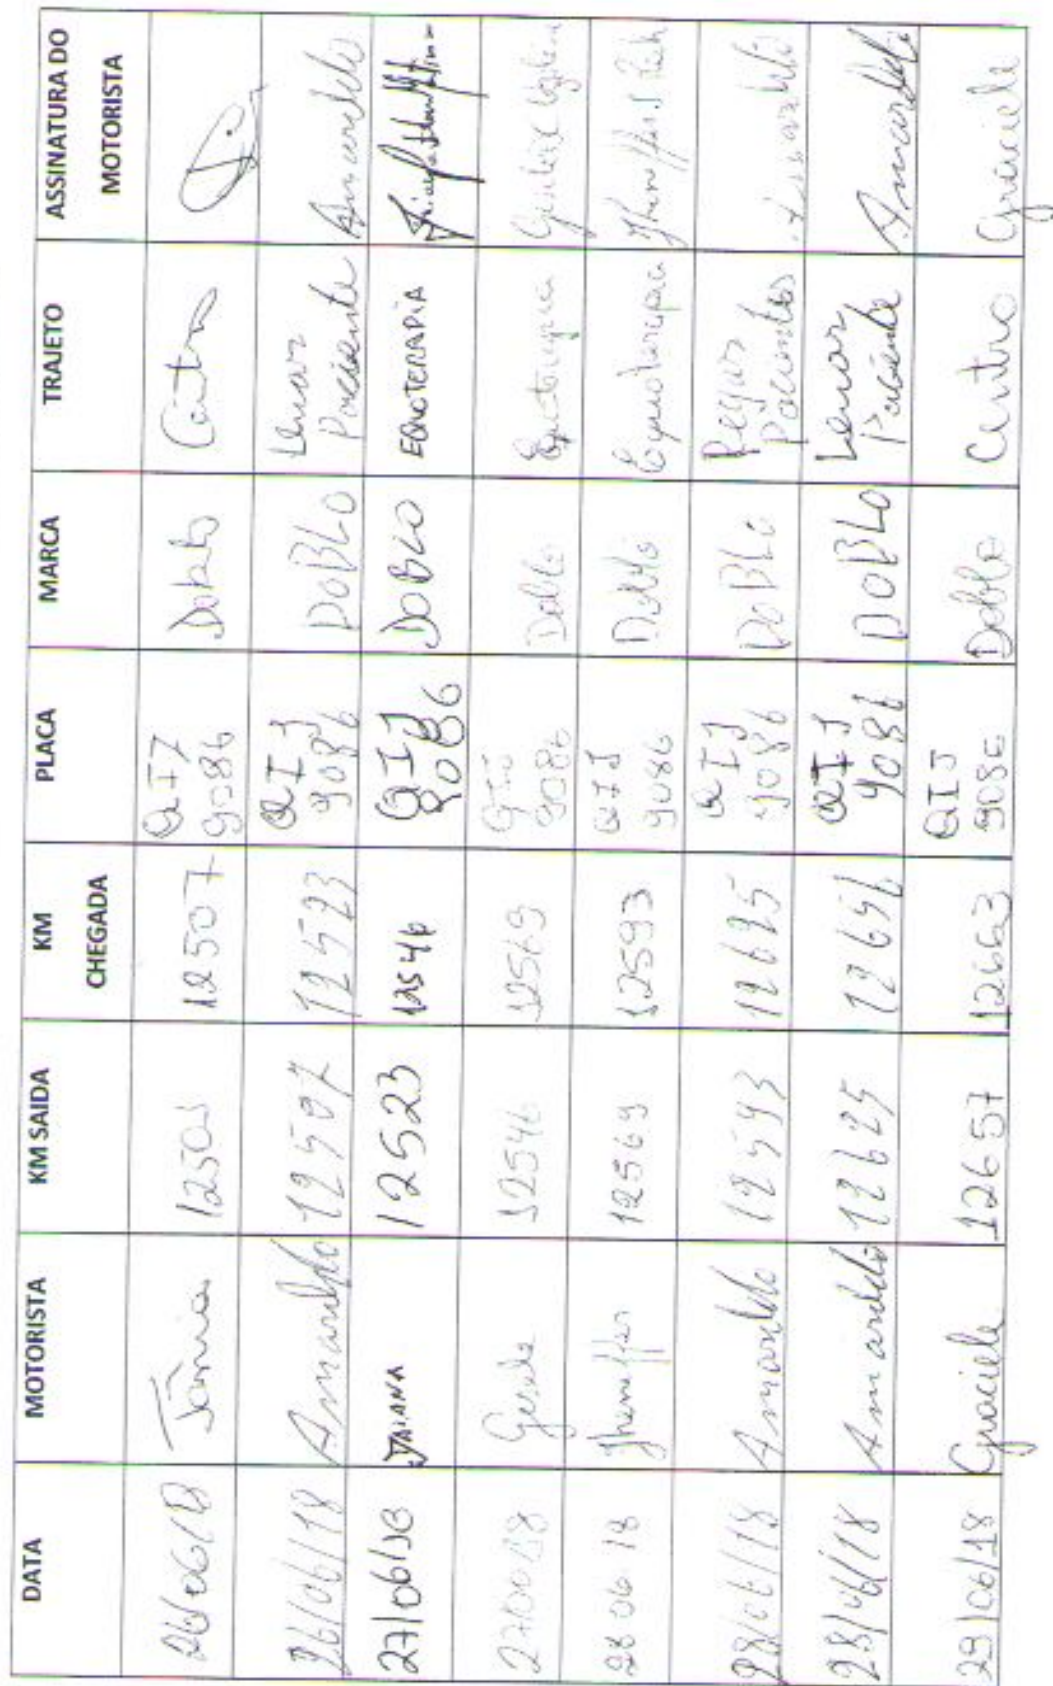 DATA MOTORISTA KM SAIDA KM CHEGADA PLACA MARCA TRAJETO ASSINATURA DO MOTORISTA
26/06/18 Tâmia 12507 QIJ 9086 Doblo Centro
26/06/18 Amarildo 12507 12523 QIJ 9086 DOBLO Levar Paciente Amarildo
27/06/18 DAIANA 12523 12546 QIJ 9086 DOBLO EQUOTERAPIA
27/06/18 Gisele 12546 12569 9086 Doblo Equoterapia
28 06 18 Jheneffer 12569 12593 QIJ 9086 Doblo Equoterapia
28/06/18 Amarildo 12593 12625 QIJ 9086 DOBLO Pegar Pacientes Amarildo
28/06/18 Amarildo 12625 12656 QIJ 9086 DOBLO Levar Paciente Amarildo
29/06/18 Graciele 12657 12663 QIJ 9086 Doblo Centro Graciele